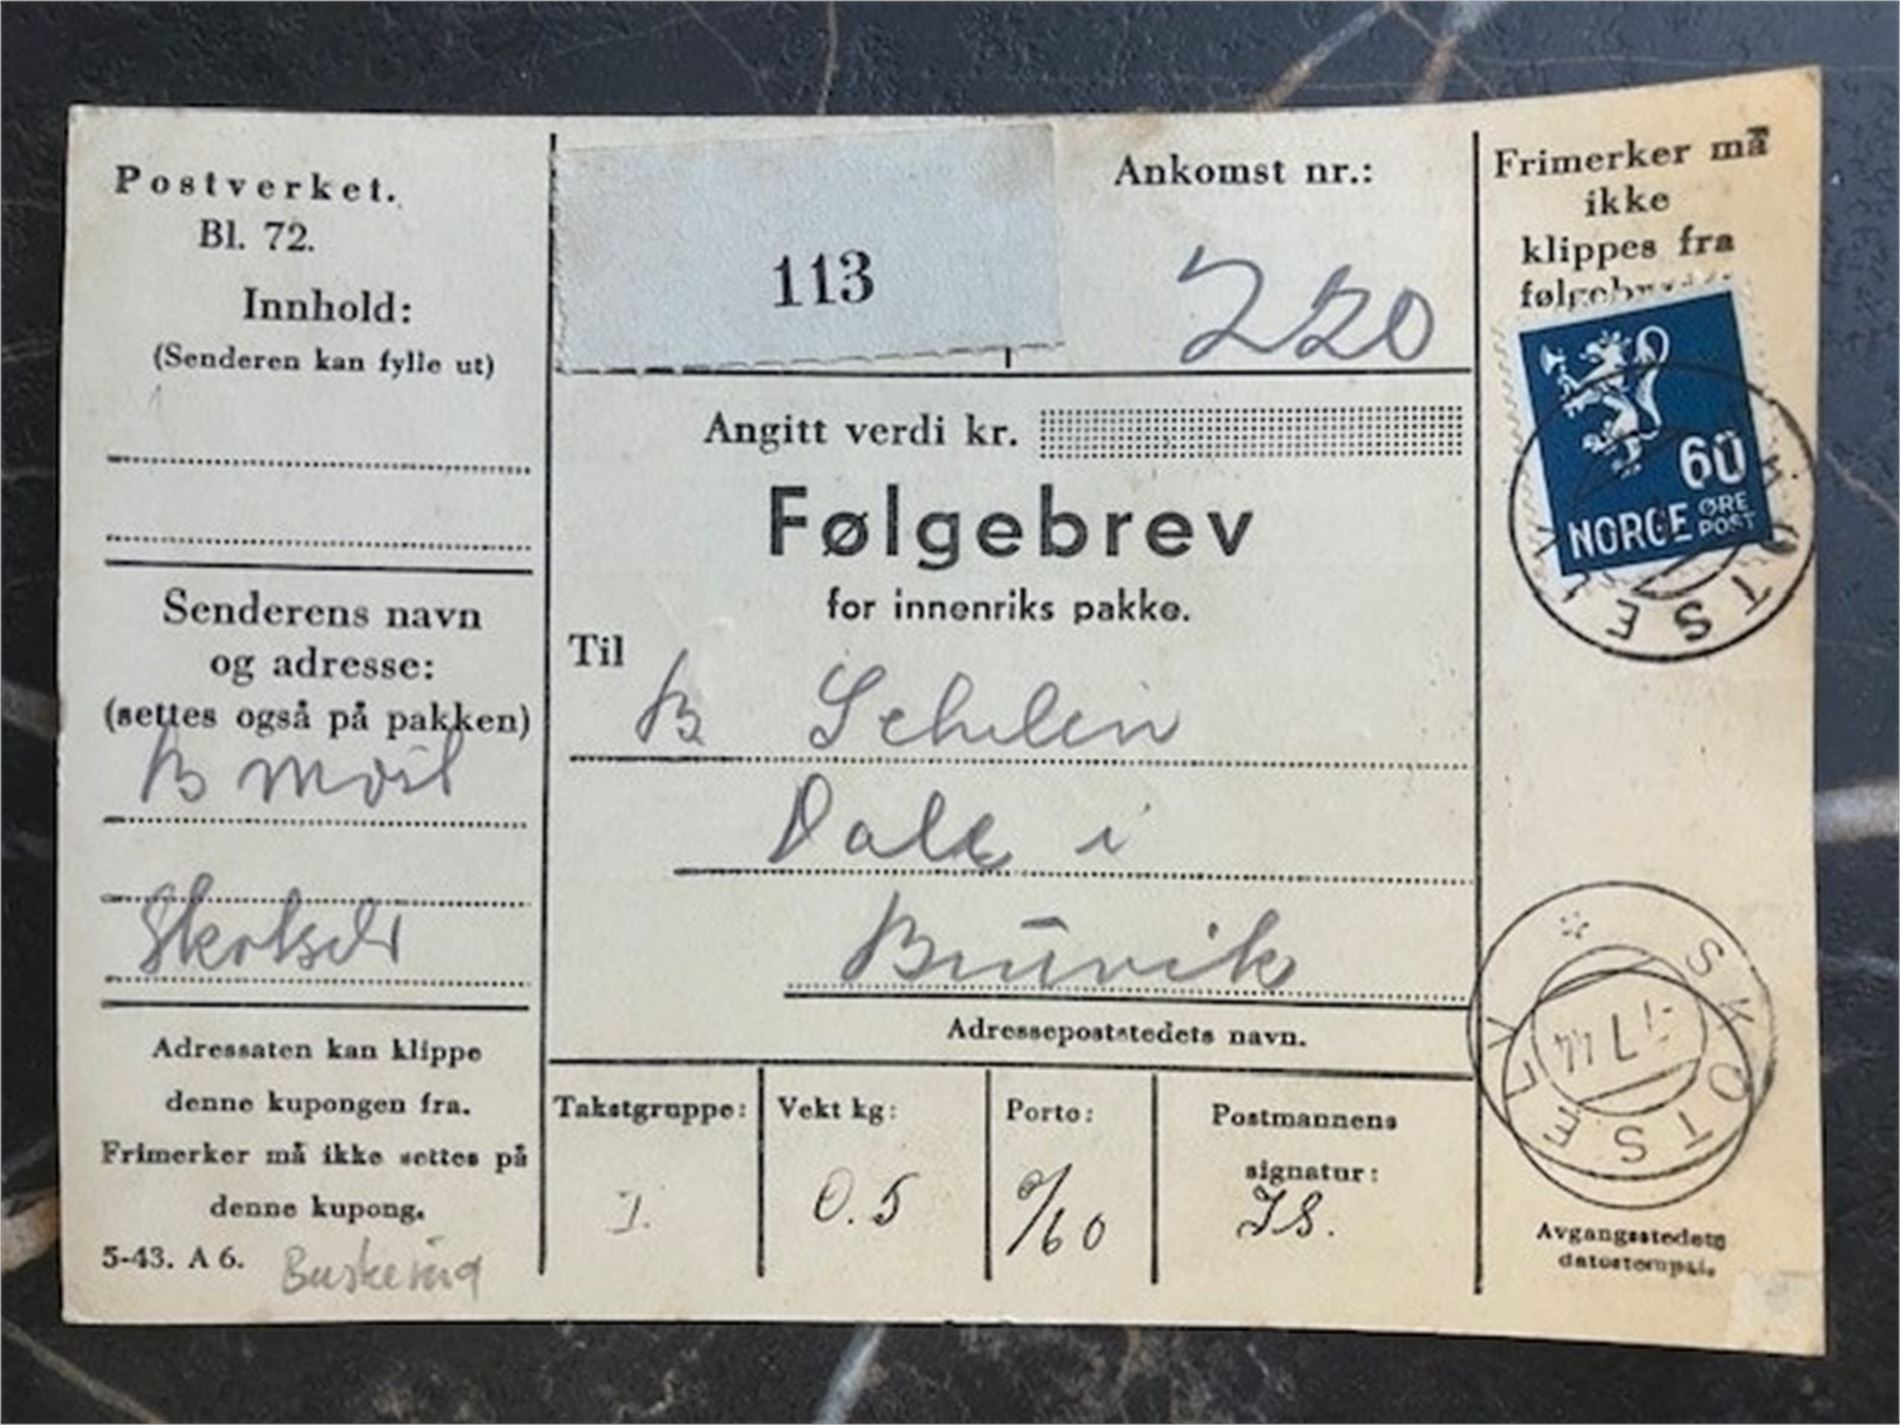 Postverket.
Bl. 72.
Innhold:
(Senderen kan fylle ut)
Senderens navn
og adresse:
(settes også på pakken)
B
Skotselv
Adressaten kan klippe
denne kupongen fra.
Frimerker må ikke settes på
denne kupong.
5-43. A 6.
Buskerud
113
Ankomst nr.:
220
Angitt verdi kr.
Følgebrev
for innenriks pakke.
Til
B
Dale i
Bruvik
Adressepoststedets navn.
Takstgruppe:
I.
Vekt kg:
0.5
Porto:
/60
Postmannens
signatur:
Frimerker må
ikke
klippes fra
60
NORGE ØRE
POST
SKOTSELV
SKOTSELV
7 44
Avgangsstedets
datostempel.